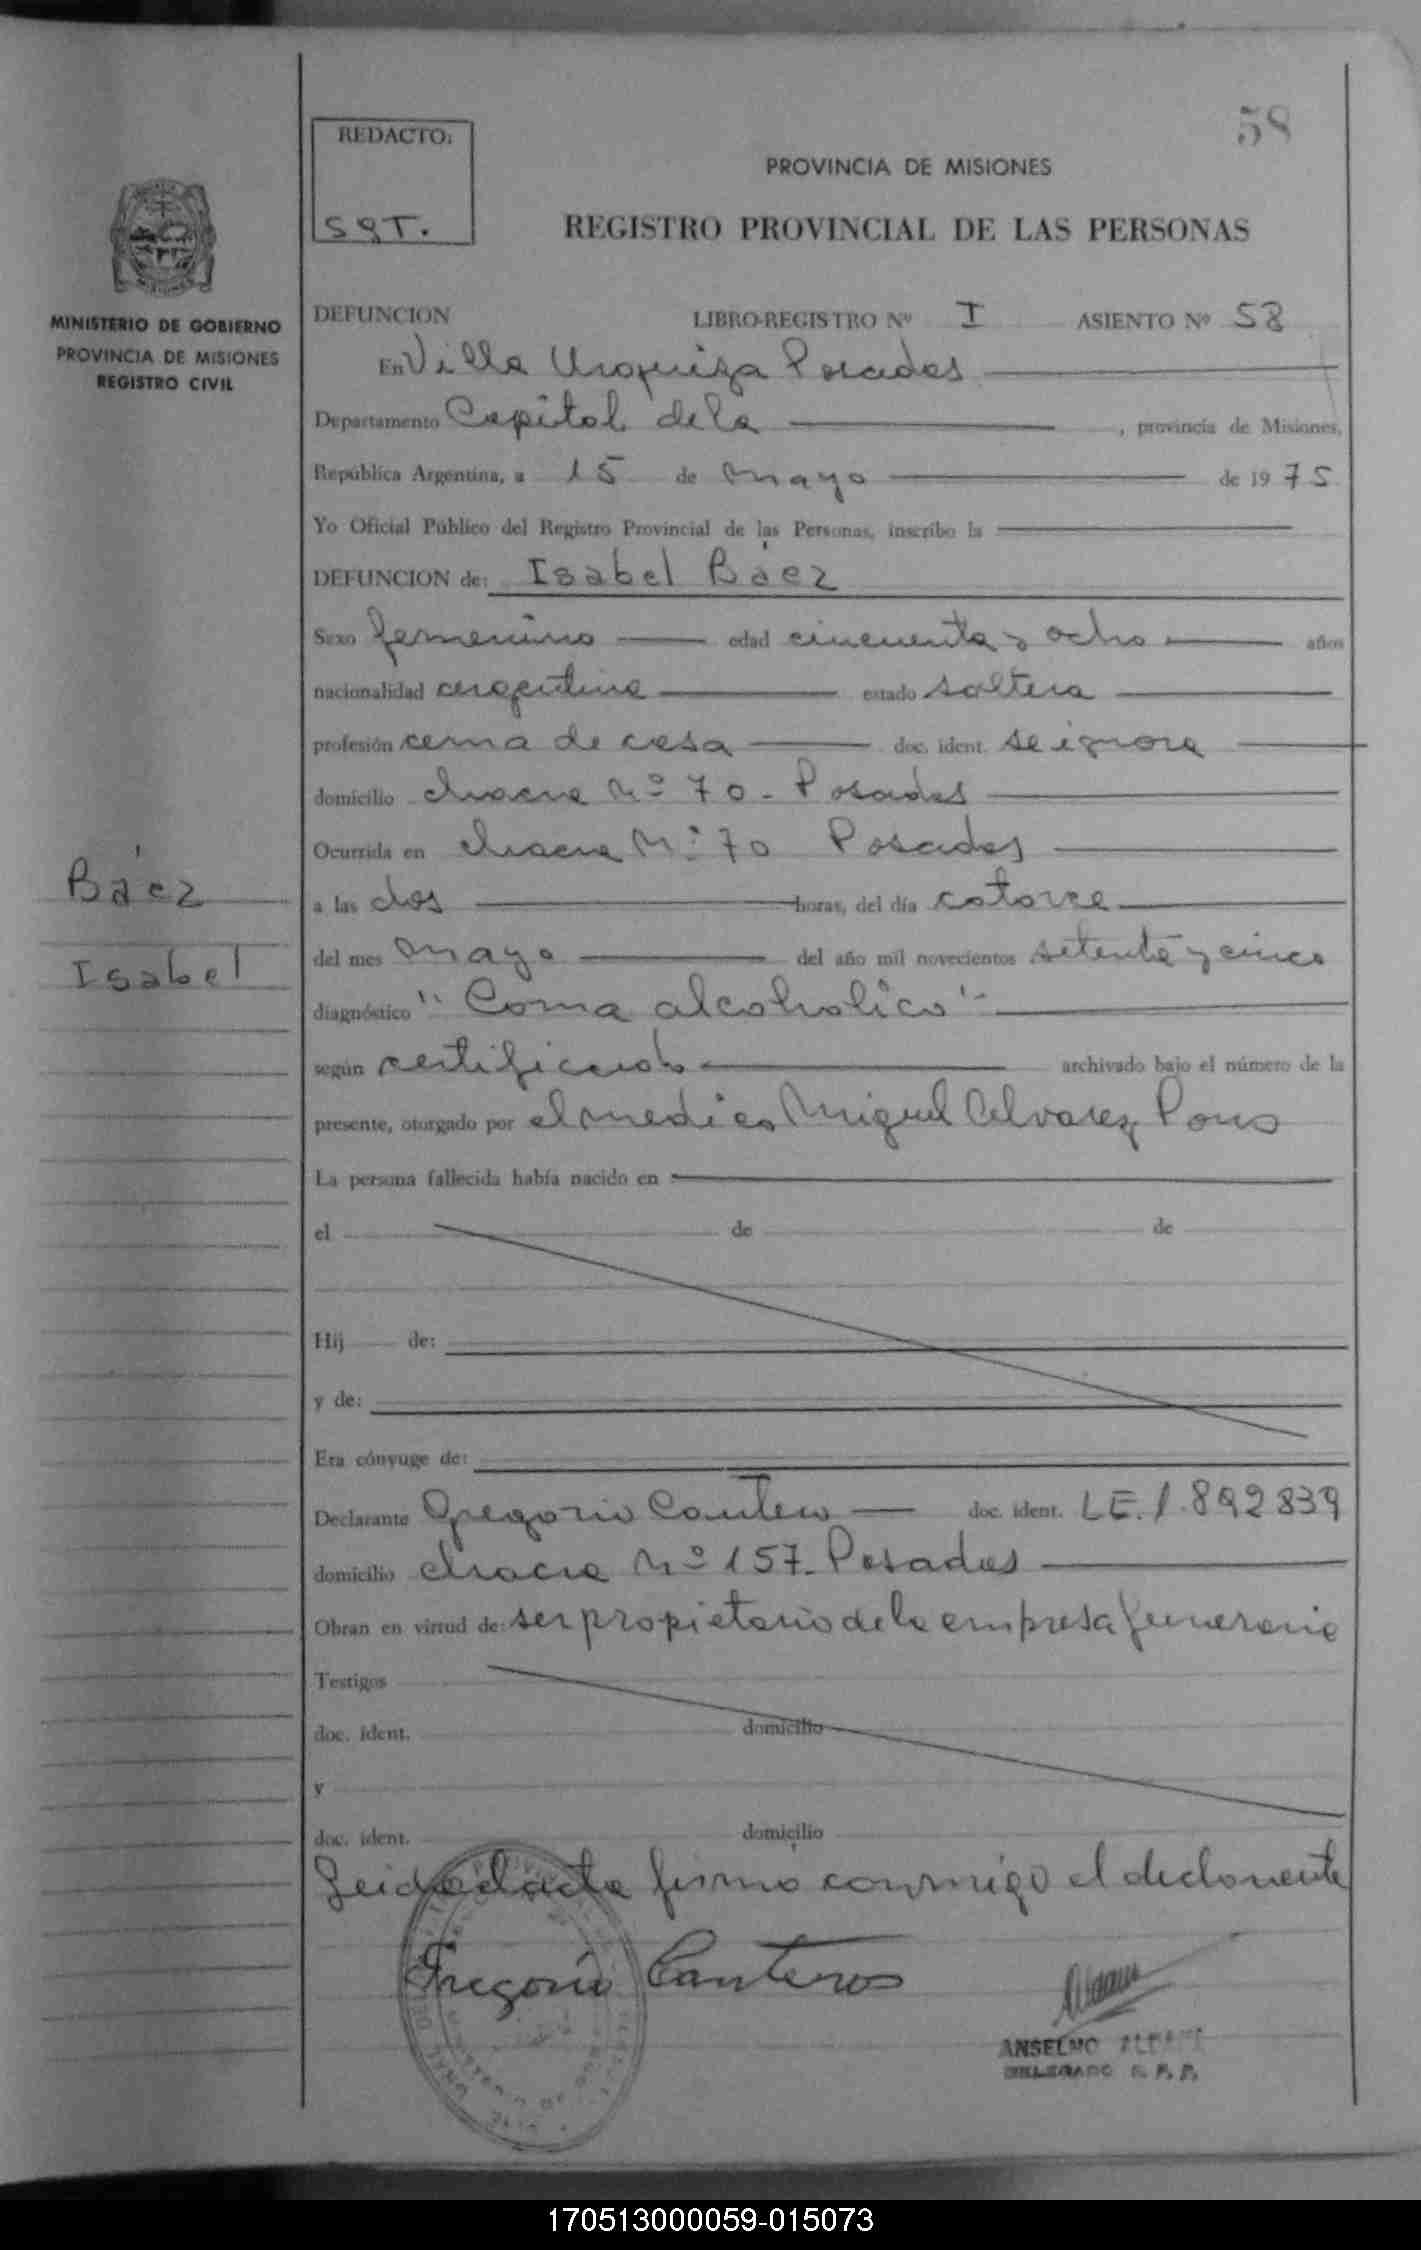 58
REDACTO:
SGT.
PROVINCIA DE MISIONES
REGISTRO PROVINCIAL DE LAS PERSONAS
MINISTERIO DE GOBIERNO
PROVINCIA DE MISIONES
REGISTRO CIVIL
DEFUNCION LIBRO-REGISTRO Nº I ASIENTO Nº 58
En Villa Urquiza Posadas
Departamento Capital de la , provincia de Misiones,
República Argentina, a 15 de mayo de 1975
Yo Oficial Público del Registro Provincial de las Personas, inscribo la
DEFUNCION de: Isabel Báez
Sexo femenino edad cincuenta y ocho años
nacionalidad argentina estado soltera
profesión ama de casa doc. ident. se ignora
domicilio chacra Nº 70 - Posadas
Ocurrida en chacra Nº 70 Posadas
Báez
Isabel
a las dos horas, del día catorce
del mes mayo del año mil novecientos setenta y cinco
diagnóstico "Coma alcoholico"
según certificado archivado bajo el número de la
presente, otorgado por el medico Miguel Alvarez Pons
La persona fallecida había nacido en
el de de
Hij de:
y de:
Era cónyuge de:
Declarante Gregorio Cantero doc. ident. LE. 1.892839
domicilio chacra Nº 157 - Posadas
Obran en virtud de: ser propietario de la empresa funeraria
Testigos
doc. ident. domicilio
y
doc. ident. domicilio
Leida el acta firma conmigo el declarante
Gregorio Canteros
ANSELMO
DELEGADO R. P. P.
170513000059-015073